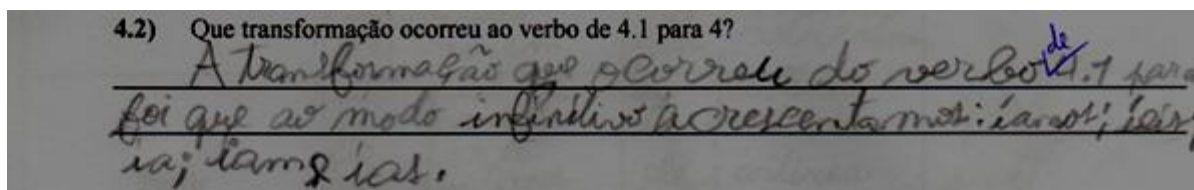 4.2) Que transformação ocorreu ao verbo de 4.1 para 4?
de
A transformação que ocorreu do verbo 4.1 para
foi que ao modo infinitivo acrescentamos: íamos; íeis;
ia; iam e ias.